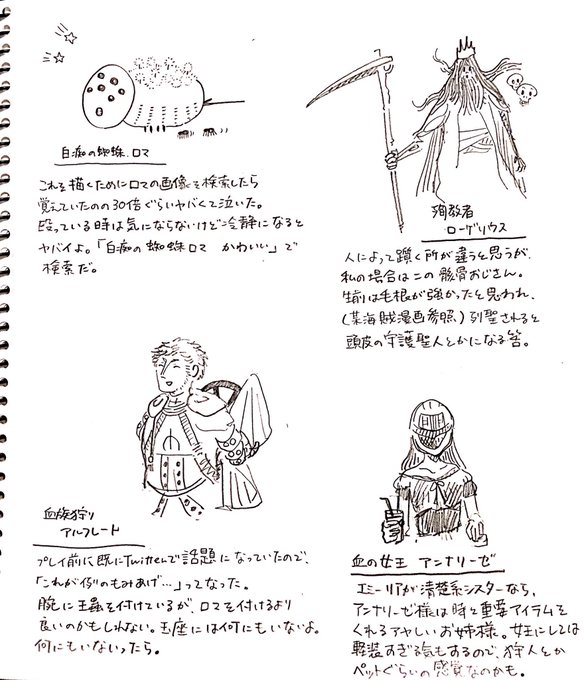 白痴の蜘蛛、ロマ
これを描くためにロマの画像を検索したら
覚えていたの30倍ぐらいヤバくて泣いた。
殴っている時は気にならないけど冷静になると
ヤバイよ。「白痴の蜘蛛ロマ かわいい」で
検索だ。
殉教者
ローゲリウス
人によって躓く所が違うと思うが、
私の場合はこの骸骨おじさん。
生前は毛根が強かったと思われ、
(某海賊漫画参照)列聖されると
頭皮の守護聖人とかになる筈。
血族狩り
アルフレート
プレイ前に既にTwitterで話題になっていたので、
「これが例のもみあげ…」ってなった。
腕に王蟲を付けているが、ロマを付けるより
良いのかもしれない。玉座には何にもいないよ。
何にもいないったら。
血の女王 アンナリーゼ
エミーリアが清楚系シスターなら、
アンナリーゼ様は時々重要アイテムを
くれるアヤしいお姉様。女王にしては
軽装すぎる気もするので、狩人とか
ペットぐらいの感覚なのかも。